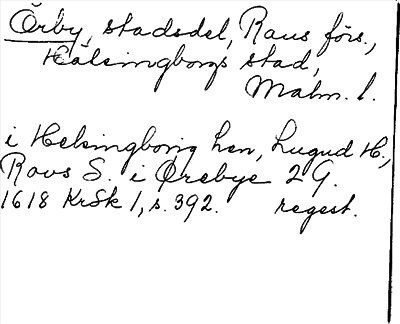 Örby, stadsdel, Raus förs.,
Hälsingborgs stad,
Malm. l.
i Helsingborig hen, Lugud H.,
Raus S. i Ørebye 2 G.
1618 KrSk 1, s. 392. regest.